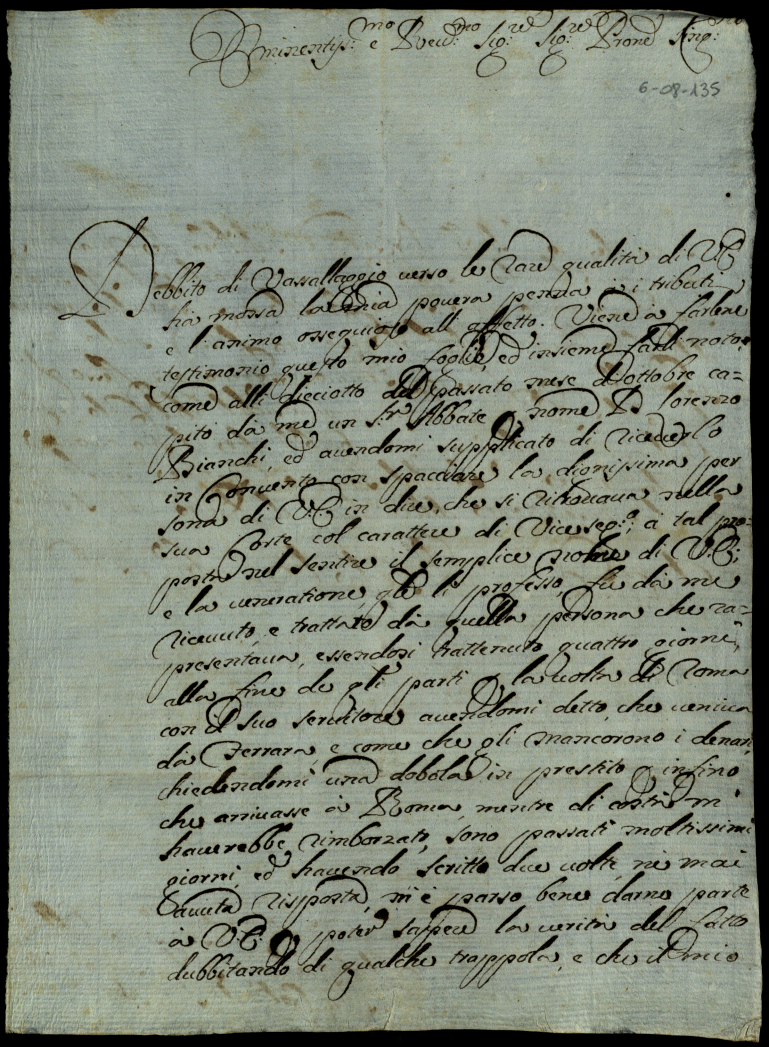 Eminentiss:mo e Reud:mo Sig:re Sig:re Prone Sing:mo
6-08-135
Debbito di Vassallaggio verso le rare qualità di V.E.
hà mossa la mia povera penna a i tributi
e l'animo ossequioso all'affetto. Viene à farlene
testimonio questo mio foglio, ed insieme farli noto,
come alli dieciotto del passato mese d'ottobre ca=
pitò dà me un S:r Abbate p nome D. Lorenzo
Bianchi, ed avendomi supplicato di riceverlo
in Convento con spacciare la dignissima per
sona di V.E. in dire, che si ritrovava nella
sua Corte col carattere di Viceseg:o, à tal pro=
posta nel sentire il semplice nome di V.E:
e la veneratione, che li professo, fù dà me
ricevuto, e trattato dà quella persona che ra=
presentava, essendosi trattenuto quattro giorni,
alla fine de gli partì p la volta di Roma
con il suo servitore avendomi detto, che veniva
dà Ferrara, e come che gli mancorono i denari,
chiedendomi una dobola in prestito p infino
che arrivasse à Roma, mentre di costì mi
haverebbe rimborzato, sono passati moltissimi
giorni, ed havendo scritto due volte, nè mai
avuta risposta, m'è parso bene darne parte
à V.E. p poter sapere la verità del fatto
dubbitando di qualche trappola, e che il mio